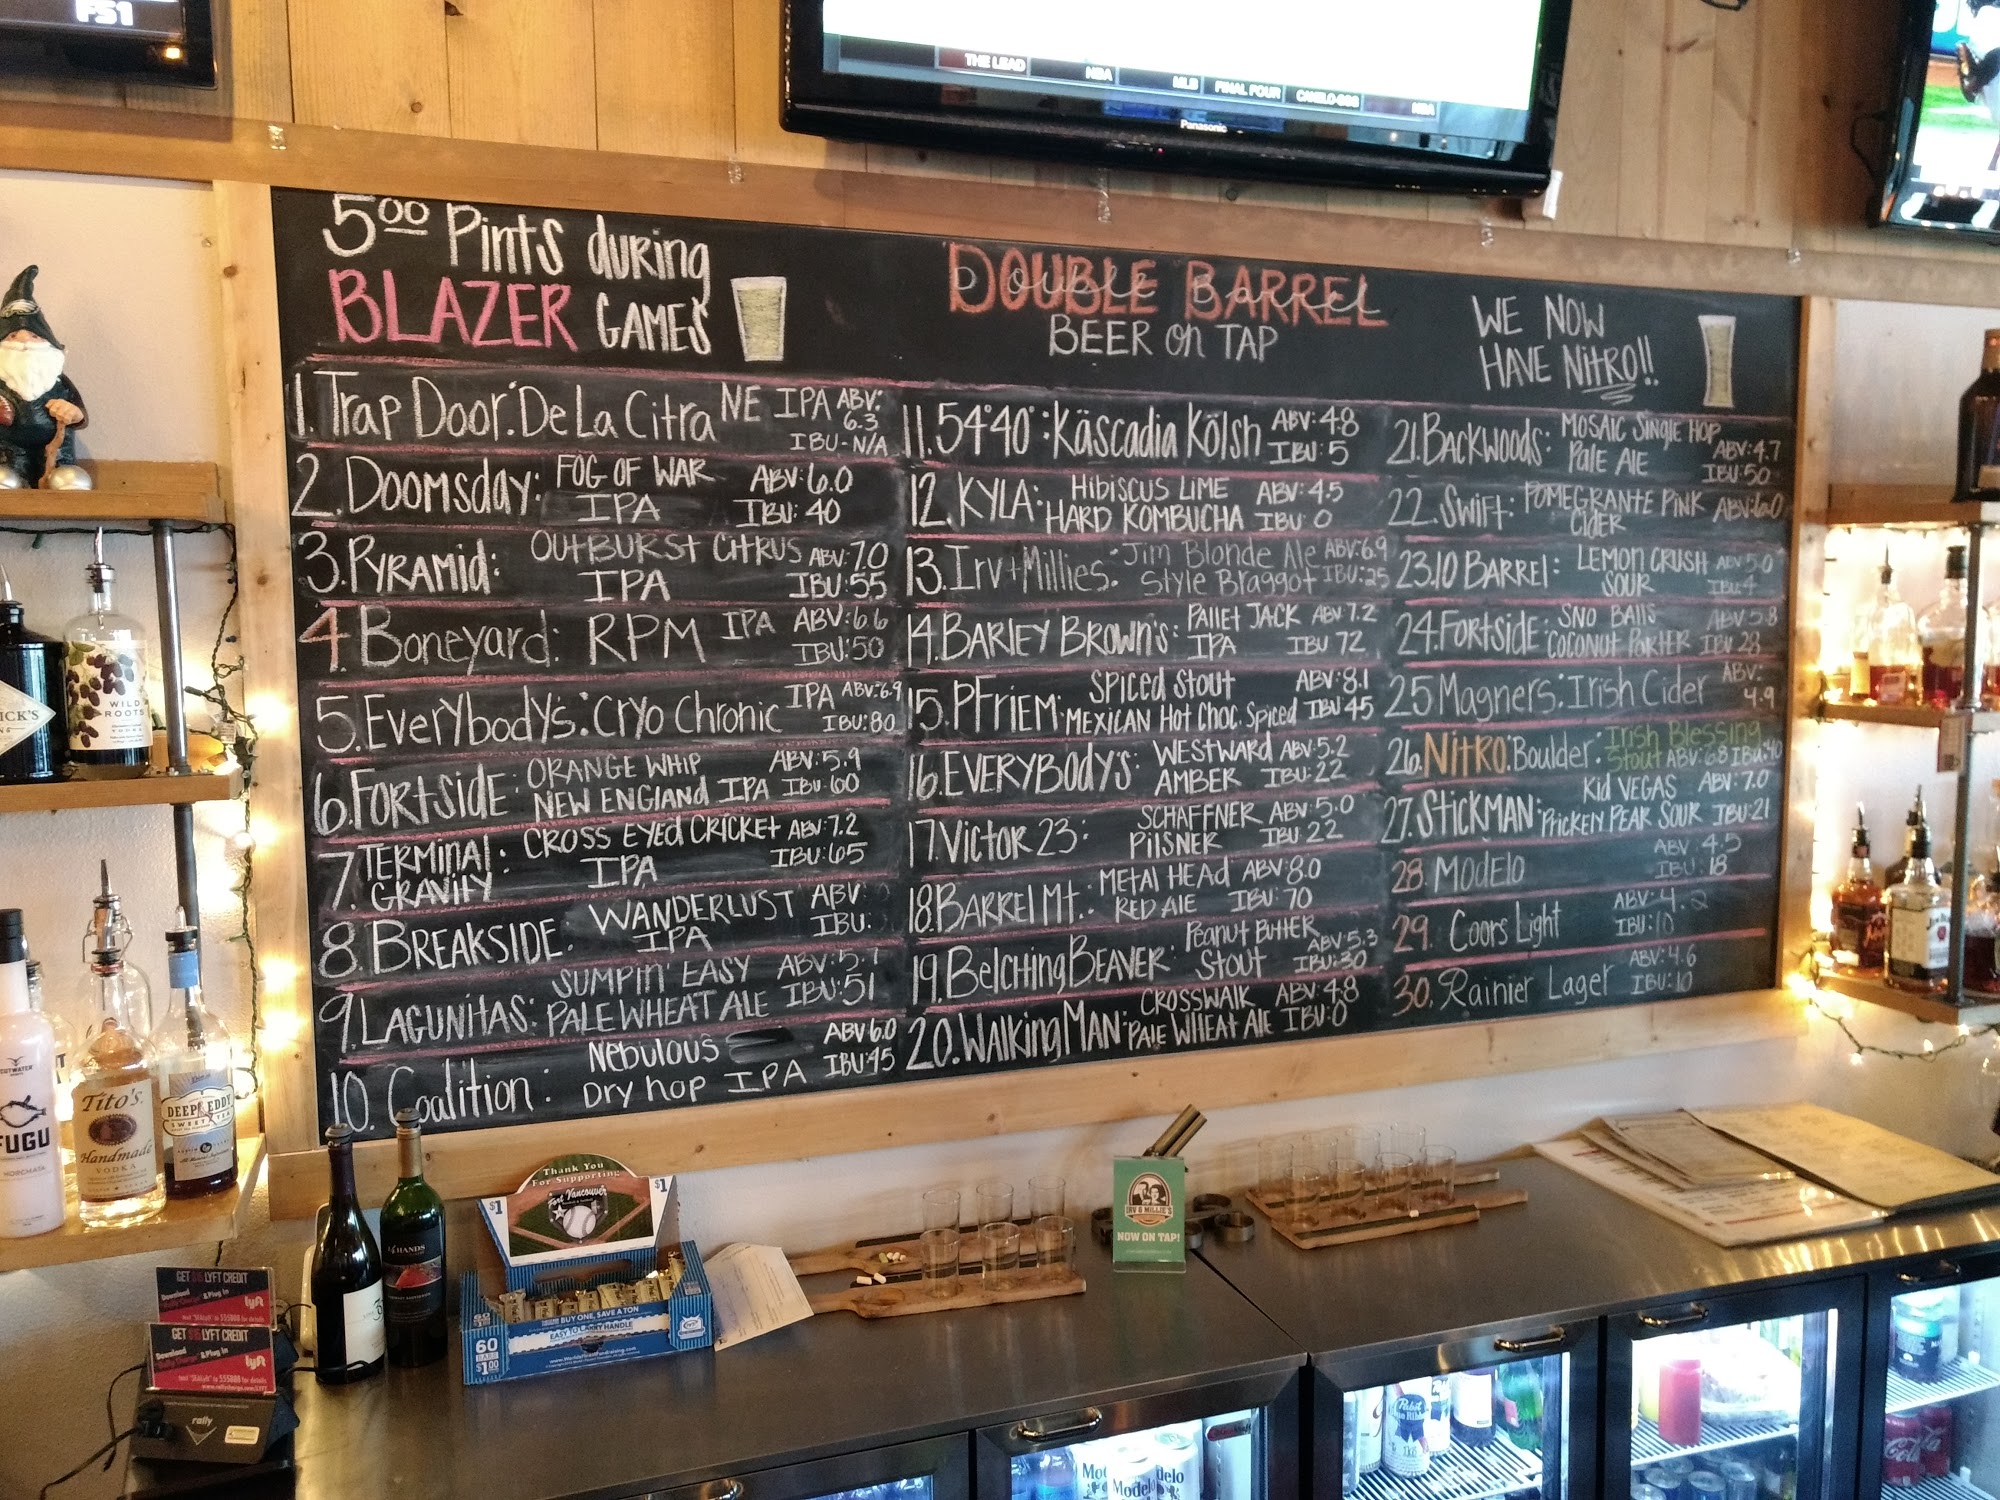 FS1
THE LEAD NBA MLB FINAL FOUR CANELO-GGG NBA
Panasonic
5.00 Pints during
BLAZER GAMES
DOUBLE BARREL
Double Barrel
BEER on TAP
WE NOW
HAVE NITRO!!
1. Trap Door: De La Citra NE IPA ABV: 6.3
IBU-N/A
2. Doomsday: FOG OF WAR ABV: 6.0
IPA IBU: 40
3. PYRAMID: OUTBURST CITRUS ABV: 7.0
IPA IBU: 55
4. Boneyard: RPM IPA ABV: 6.6
IBU: 50
5. Everybody's: Cryo Chronic IPA ABV: 6.9
IBU: 80
6. FORTSIDE: ORANGE WHIP ABV: 5.9
NEW ENGLAND IPA IBU: 60
7. TERMINAL GRAVITY: CROSS EYED CRICKET ABV: 7.2
IPA IBU: 65
8. BREAKSIDE: WANDERLUST ABV:
IPA IBU:
9. LAGUNITAS: SUMPIN' EASY ABV: 5.7
PALE WHEAT ALE IBU: 51
10. Coalition: Nebulous ABV 6.0
Dry hop IPA IBU: 45
11. 54°40°: Käscadia Kölsh ABV: 4.8
IBU: 5
12. KYLA: HIBISCUS LIME ABV: 4.5
HARD KOMBUCHA IBU: 0
13. Irv + Millies: Jim Blonde Ale ABV: 6.9
Style Braggot IBU: 25
14. BARLEY BROWN'S: PALLET JACK ABV 7.2
IPA IBU 72
15. PFRIEM: SPICED STOUT ABV: 8.1
MEXICAN HOT CHOC. SPICED IBU 45
16. EVERYBODY'S: WESTWARD ABV: 5.2
AMBER IBU: 22
17. VICTOR 23: SCHAFFNER ABV: 5.0
PILSNER IBU 22
18. BARREL MT.: METAL HEAD ABV: 8.0
RED ALE IBU: 70
19. BELCHING BEAVER: PEANUT BUTTER ABV: 5.3
STOUT IBU: 30
20. WALKING MAN: CROSSWALK ABV: 4.8
PALE WHEAT ALE IBU: 0
21. BACKWOODS: MOSAIC SINGLE HOP ABV: 4.7
PALE ALE IBU: 50
22. SWIFT: POMEGRANTE PINK ABV: 6.0
CIDER
23. 10 BARREL: LEMON CRUSH ABV 5.0
SOUR IBU: 4
24. FORTSIDE: SNO BALLS ABV 5.8
COCONUT PORTER IBU 28
25 Magners: Irish Cider ABV:
4.9
26. NITRO: Boulder: Irish Blessing
Stout ABV: 6.8 IBU: 40
27. STICKMAN: KID VEGAS ABV: 7.0
PRICKELY PEAR SOUR IBU: 21
28. MODELO ABV 4.5
IBU: 18
29. Coors Light ABV: 4.2
IBU: 10
30. Rainier Lager ABV: 4.6
IBU: 10
WILD
ROOTS
VODKA
FUGU
HORCHATA
Tito's
Handmade
VODKA
DEEP EDDY
SWEET TEA
GET $5 LYFT CREDIT
Download
lyft
GET $5 LYFT CREDIT
Download
lyft
rally
14 HANDS
Thank You
For Supporting
Fort Vancouver
$1
$1
BUY ONE, SAVE A TON
EASY TO CARRY HANDLE
60
BARS
$1.00
IRV & MILLIE'S
NOW ON TAP!
Modelo
Pabst
Coca-Cola